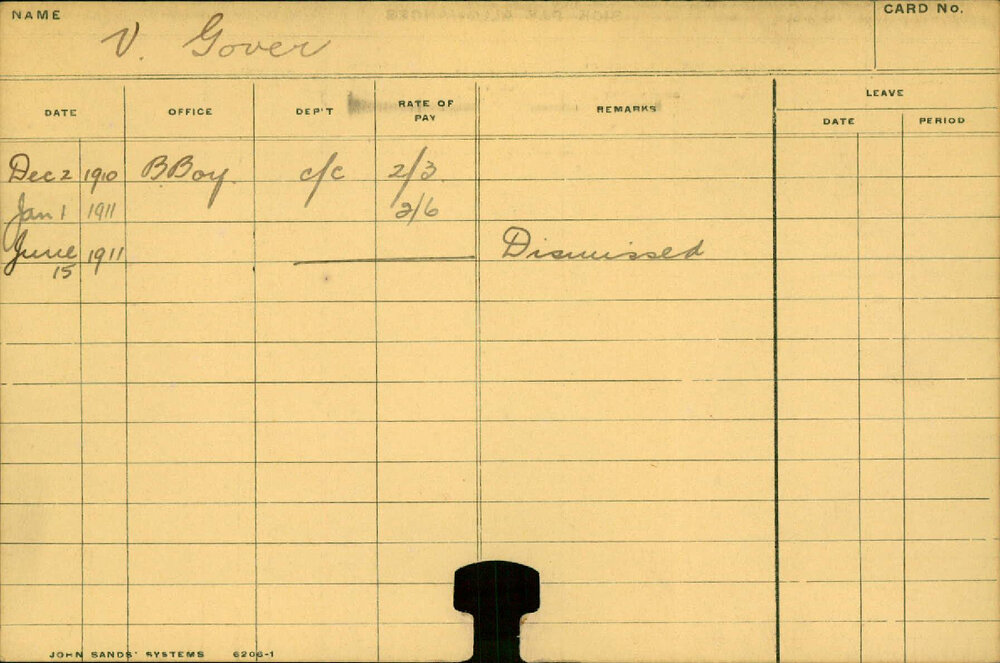 NAME V. Gover CARD No.
LEAVE
DATE OFFICE DEP'T RATE OF PAY REMARKS DATE PERIOD
Dec 2 1910 B Boy. c/c 2/3
Jan 1 1911 2/6
June 15 1911 Dismissed
JOHN SANDS' SYSTEMS 6206-1